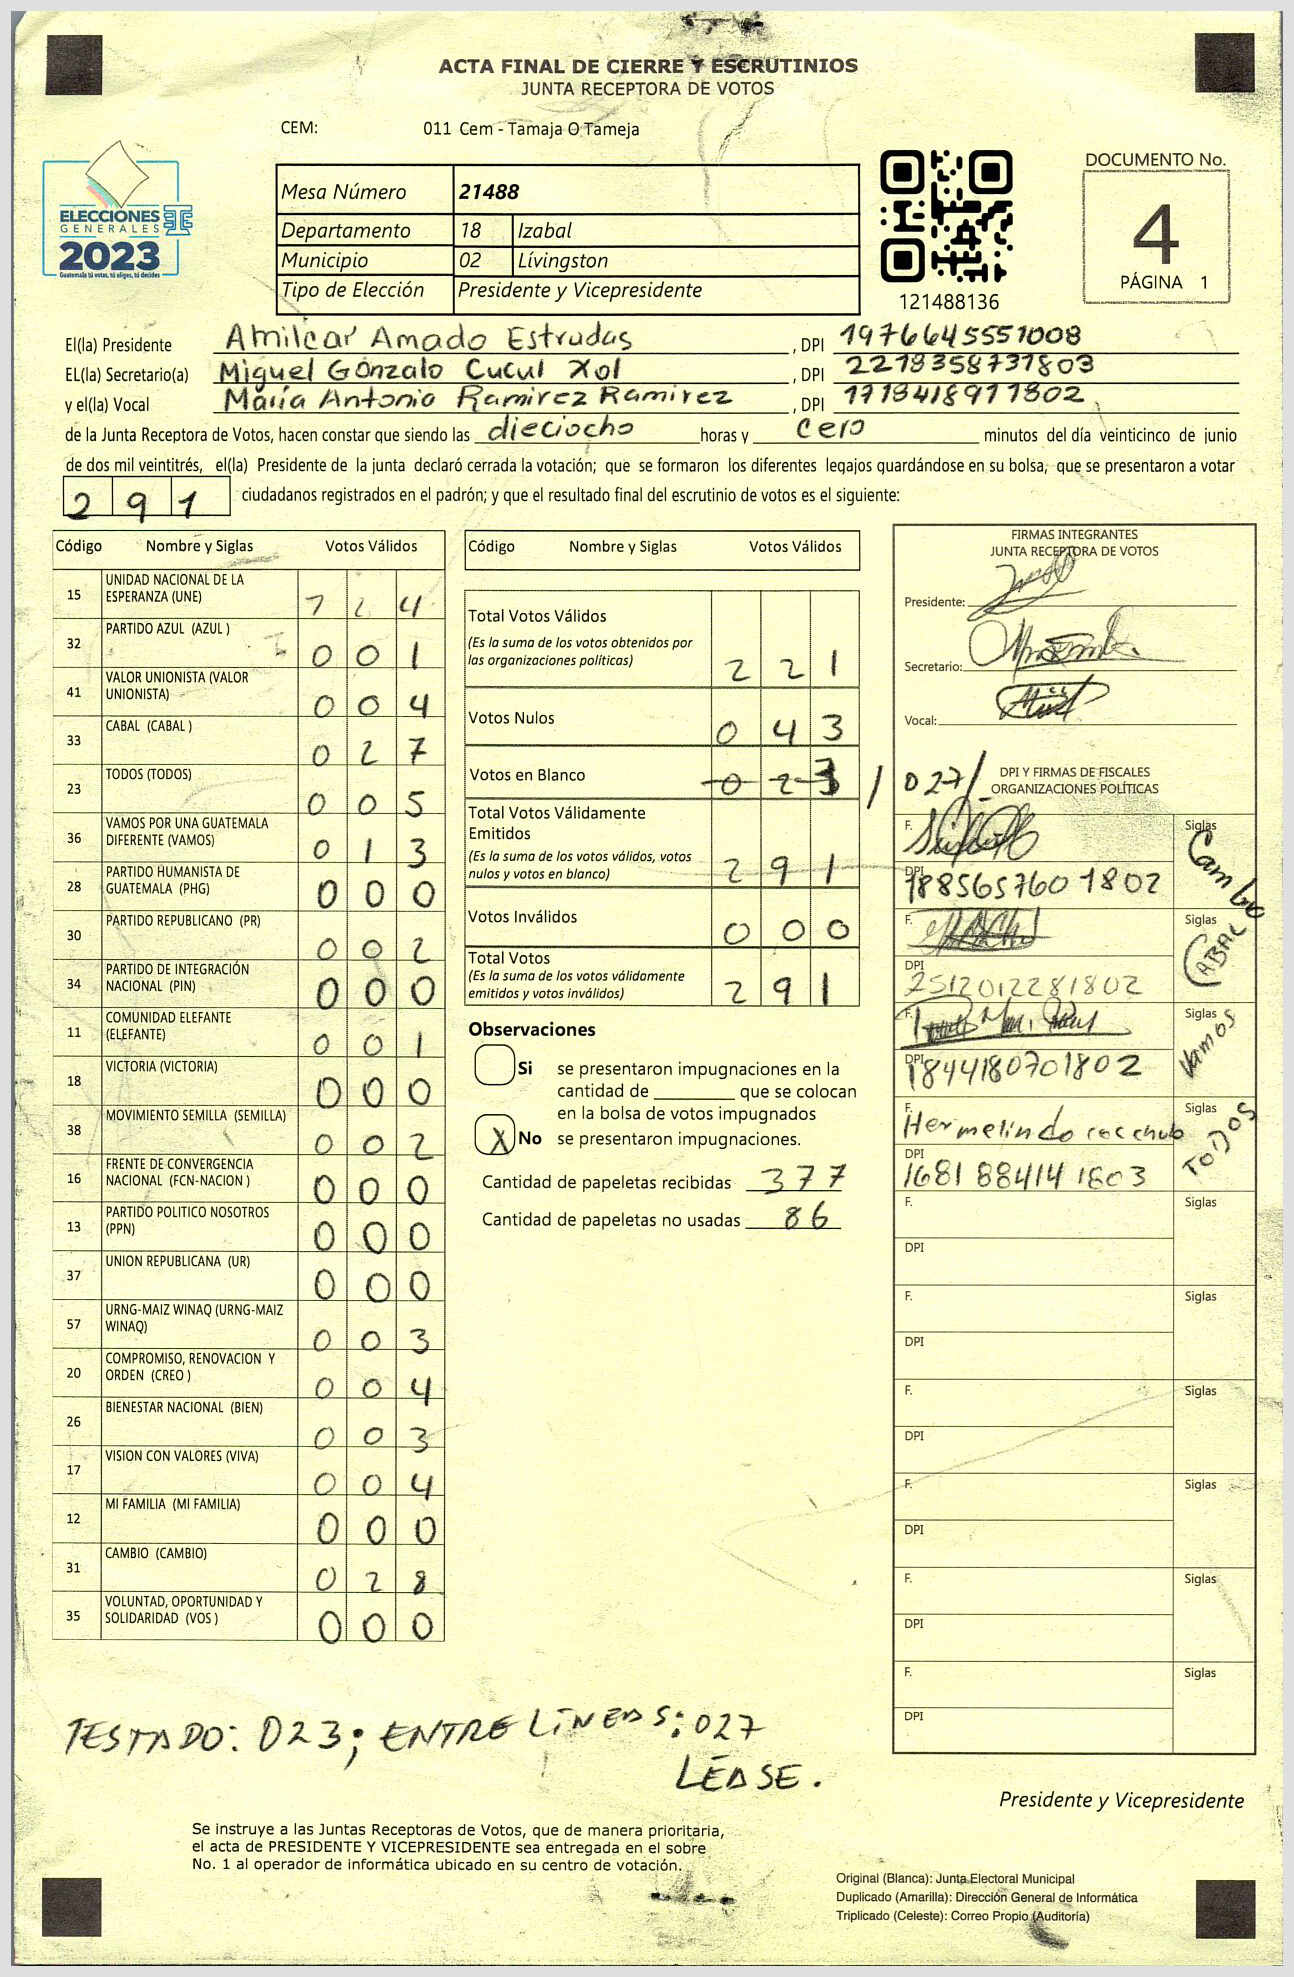 ACTA FINAL DE CIERRE Y ESCRUTINIOS
JUNTA RECEPTORA DE VOTOS
CEM: 011 Cem - Tamaja O Tameja
ELECCIONES
GENERALES
2023
Guatemala tú votas, tú eliges, tú decides
Mesa Número 21488
Departamento 18 Izabal
Municipio 02 Lívingston
Tipo de Elección Presidente y Vicepresidente
121488136
DOCUMENTO No.
4
PÁGINA 1
El(la) Presidente Amilcar Amado Estradas , DPI 1976645551008
EL(la) Secretario(a) Miguel Gonzalo Cucul Xol , DPI 2219358731803
y el(la) Vocal María Antonio Ramirez Ramirez , DPI 1718418911802
de la Junta Receptora de Votos, hacen constar que siendo las dieciocho horas y cero minutos del día veinticinco de junio
de dos mil veintitrés, el(la) Presidente de la junta declaró cerrada la votación; que se formaron los diferentes legajos guardándose en su bolsa, que se presentaron a votar
291 ciudadanos registrados en el padrón; y que el resultado final del escrutinio de votos es el siguiente:
Código Nombre y Siglas Votos Válidos
15 UNIDAD NACIONAL DE LA
ESPERANZA (UNE) 1 2 4
32 PARTIDO AZUL (AZUL ) 0 0 1
41 VALOR UNIONISTA (VALOR
UNIONISTA) 0 0 4
33 CABAL (CABAL ) 0 2 7
23 TODOS (TODOS) 0 0 5
36 VAMOS POR UNA GUATEMALA
DIFERENTE (VAMOS) 0 1 3
28 PARTIDO HUMANISTA DE
GUATEMALA (PHG) 0 0 0
30 PARTIDO REPUBLICANO (PR) 0 0 2
34 PARTIDO DE INTEGRACIÓN
NACIONAL (PIN) 0 0 0
11 COMUNIDAD ELEFANTE
(ELEFANTE) 0 0 1
18 VICTORIA (VICTORIA) 0 0 0
38 MOVIMIENTO SEMILLA (SEMILLA) 0 0 2
16 FRENTE DE CONVERGENCIA
NACIONAL (FCN-NACION ) 0 0 0
13 PARTIDO POLITICO NOSOTROS
(PPN) 0 0 0
37 UNION REPUBLICANA (UR) 0 0 0
57 URNG-MAIZ WINAQ (URNG-MAIZ
WINAQ) 0 0 3
20 COMPROMISO, RENOVACION Y
ORDEN (CREO ) 0 0 4
26 BIENESTAR NACIONAL (BIEN) 0 0 3
17 VISION CON VALORES (VIVA) 0 0 4
12 MI FAMILIA (MI FAMILIA) 0 0 0
31 CAMBIO (CAMBIO) 0 2 8
35 VOLUNTAD, OPORTUNIDAD Y
SOLIDARIDAD (VOS ) 0 0 0
Código Nombre y Siglas Votos Válidos
Total Votos Válidos
(Es la suma de los votos obtenidos por
las organizaciones políticas) 2 2 1
Votos Nulos 0 4 3
Votos en Blanco 0 2 3 / 027/
Total Votos Válidamente
Emitidos
(Es la suma de los votos válidos, votos
nulos y votos en blanco) 2 9 1
Votos Inválidos 0 0 0
Total Votos
(Es la suma de los votos válidamente
emitidos y votos inválidos) 2 9 1
Observaciones
Si se presentaron impugnaciones en la
cantidad de ________ que se colocan
en la bolsa de votos impugnados
X No se presentaron impugnaciones.
Cantidad de papeletas recibidas 377
Cantidad de papeletas no usadas 86
FIRMAS INTEGRANTES
JUNTA RECEPTORA DE VOTOS
Presidente:
Secretario:
Vocal:
DPI Y FIRMAS DE FISCALES
ORGANIZACIONES POLÍTICAS
F. Siglas Cambio
DPI 1885657601802
F. Siglas CABAL
DPI 2512012281802
F. Siglas Vamos
DPI 1844180701802
F. Hermelindo Siglas TODOS
DPI 1681 88414 1803
F. Siglas
DPI
F. Siglas
DPI
F. Siglas
DPI
F. Siglas
DPI
F. Siglas
DPI
F. Siglas
DPI
TESTADO: 023; ENTRE LÍNEAS: 027
LÉASE.
Presidente y Vicepresidente
Se instruye a las Juntas Receptoras de Votos, que de manera prioritaria,
el acta de PRESIDENTE Y VICEPRESIDENTE sea entregada en el sobre
No. 1 al operador de informática ubicado en su centro de votación.
Original (Blanca): Junta Electoral Municipal
Duplicado (Amarilla): Dirección General de Informática
Triplicado (Celeste): Correo Propio (Auditoría)